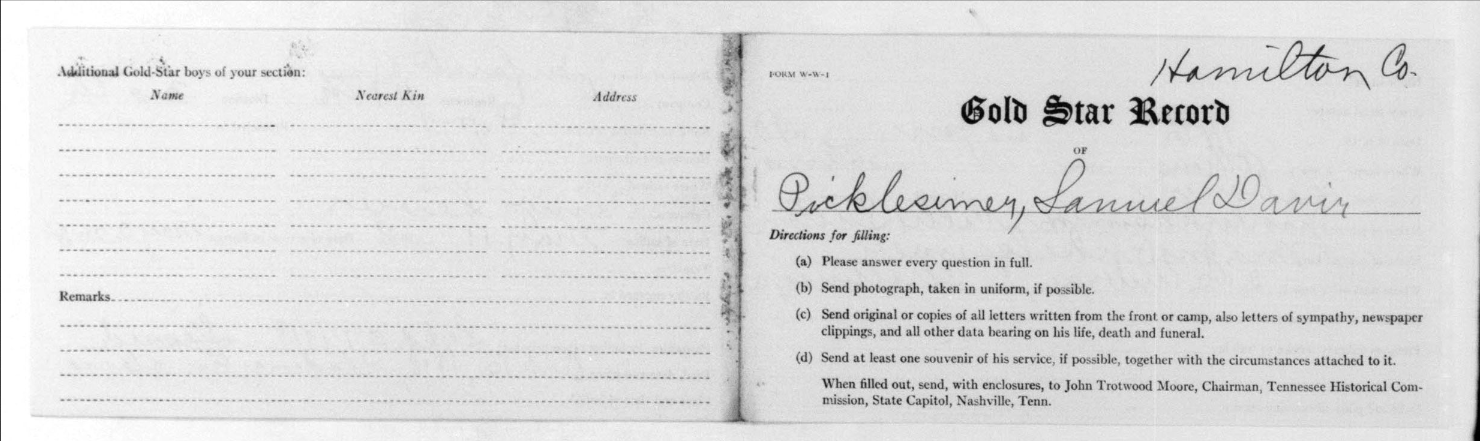 Additional Gold-Star boys of your section:
Name Nearest Kin Address
Remarks
FORM W-W-1
Hamilton Co.
Gold Star Record
OF
Picklesimer, Samuel Davis
Directions for filling:
(a) Please answer every question in full.
(b) Send photograph, taken in uniform, if possible.
(c) Send original or copies of all letters written from the front or camp, also letters of sympathy, newspaper
clippings, and all other data bearing on his life, death and funeral.
(d) Send at least one souvenir of his service, if possible, together with the circumstances attached to it.
When filled out, send, with enclosures, to John Trotwood Moore, Chairman, Tennessee Historical Com-
mission, State Capitol, Nashville, Tenn.